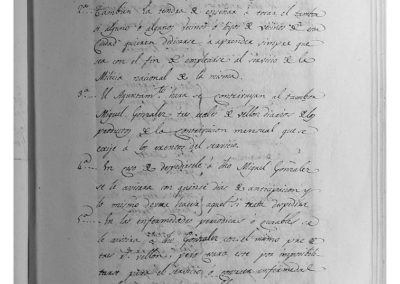 2ª... También la tendrá de enseñar á tocar el tambor
si alguno ó algunos vecinos ó hijos de vecinos de esta
Ciudad quieran dedicarse á aprender siempre que
sea con el fin de emplearse al servicio de la
Milicia nacional de la misma.
3ª... El Ayuntamtº hará se contribuyan al tambor
Miguel Gonzalez tres reales de vellon diarios de los
productos de la contribucion mensual que se
exije á los exentos del servicio.
4ª... En caso de despedirle á dho Miguel Gonzalez
se le avisara con quince dias de anticipacion y
lo mismo devera hacer aquel si trata despedirse
5ª... En las enfermedades pasageras ó curables se
le asistira á dho Gonzalez con el mismo pre de
tres rˢ vellon, pero para este por imposibili-
tarse para el servicio ó enfermedad